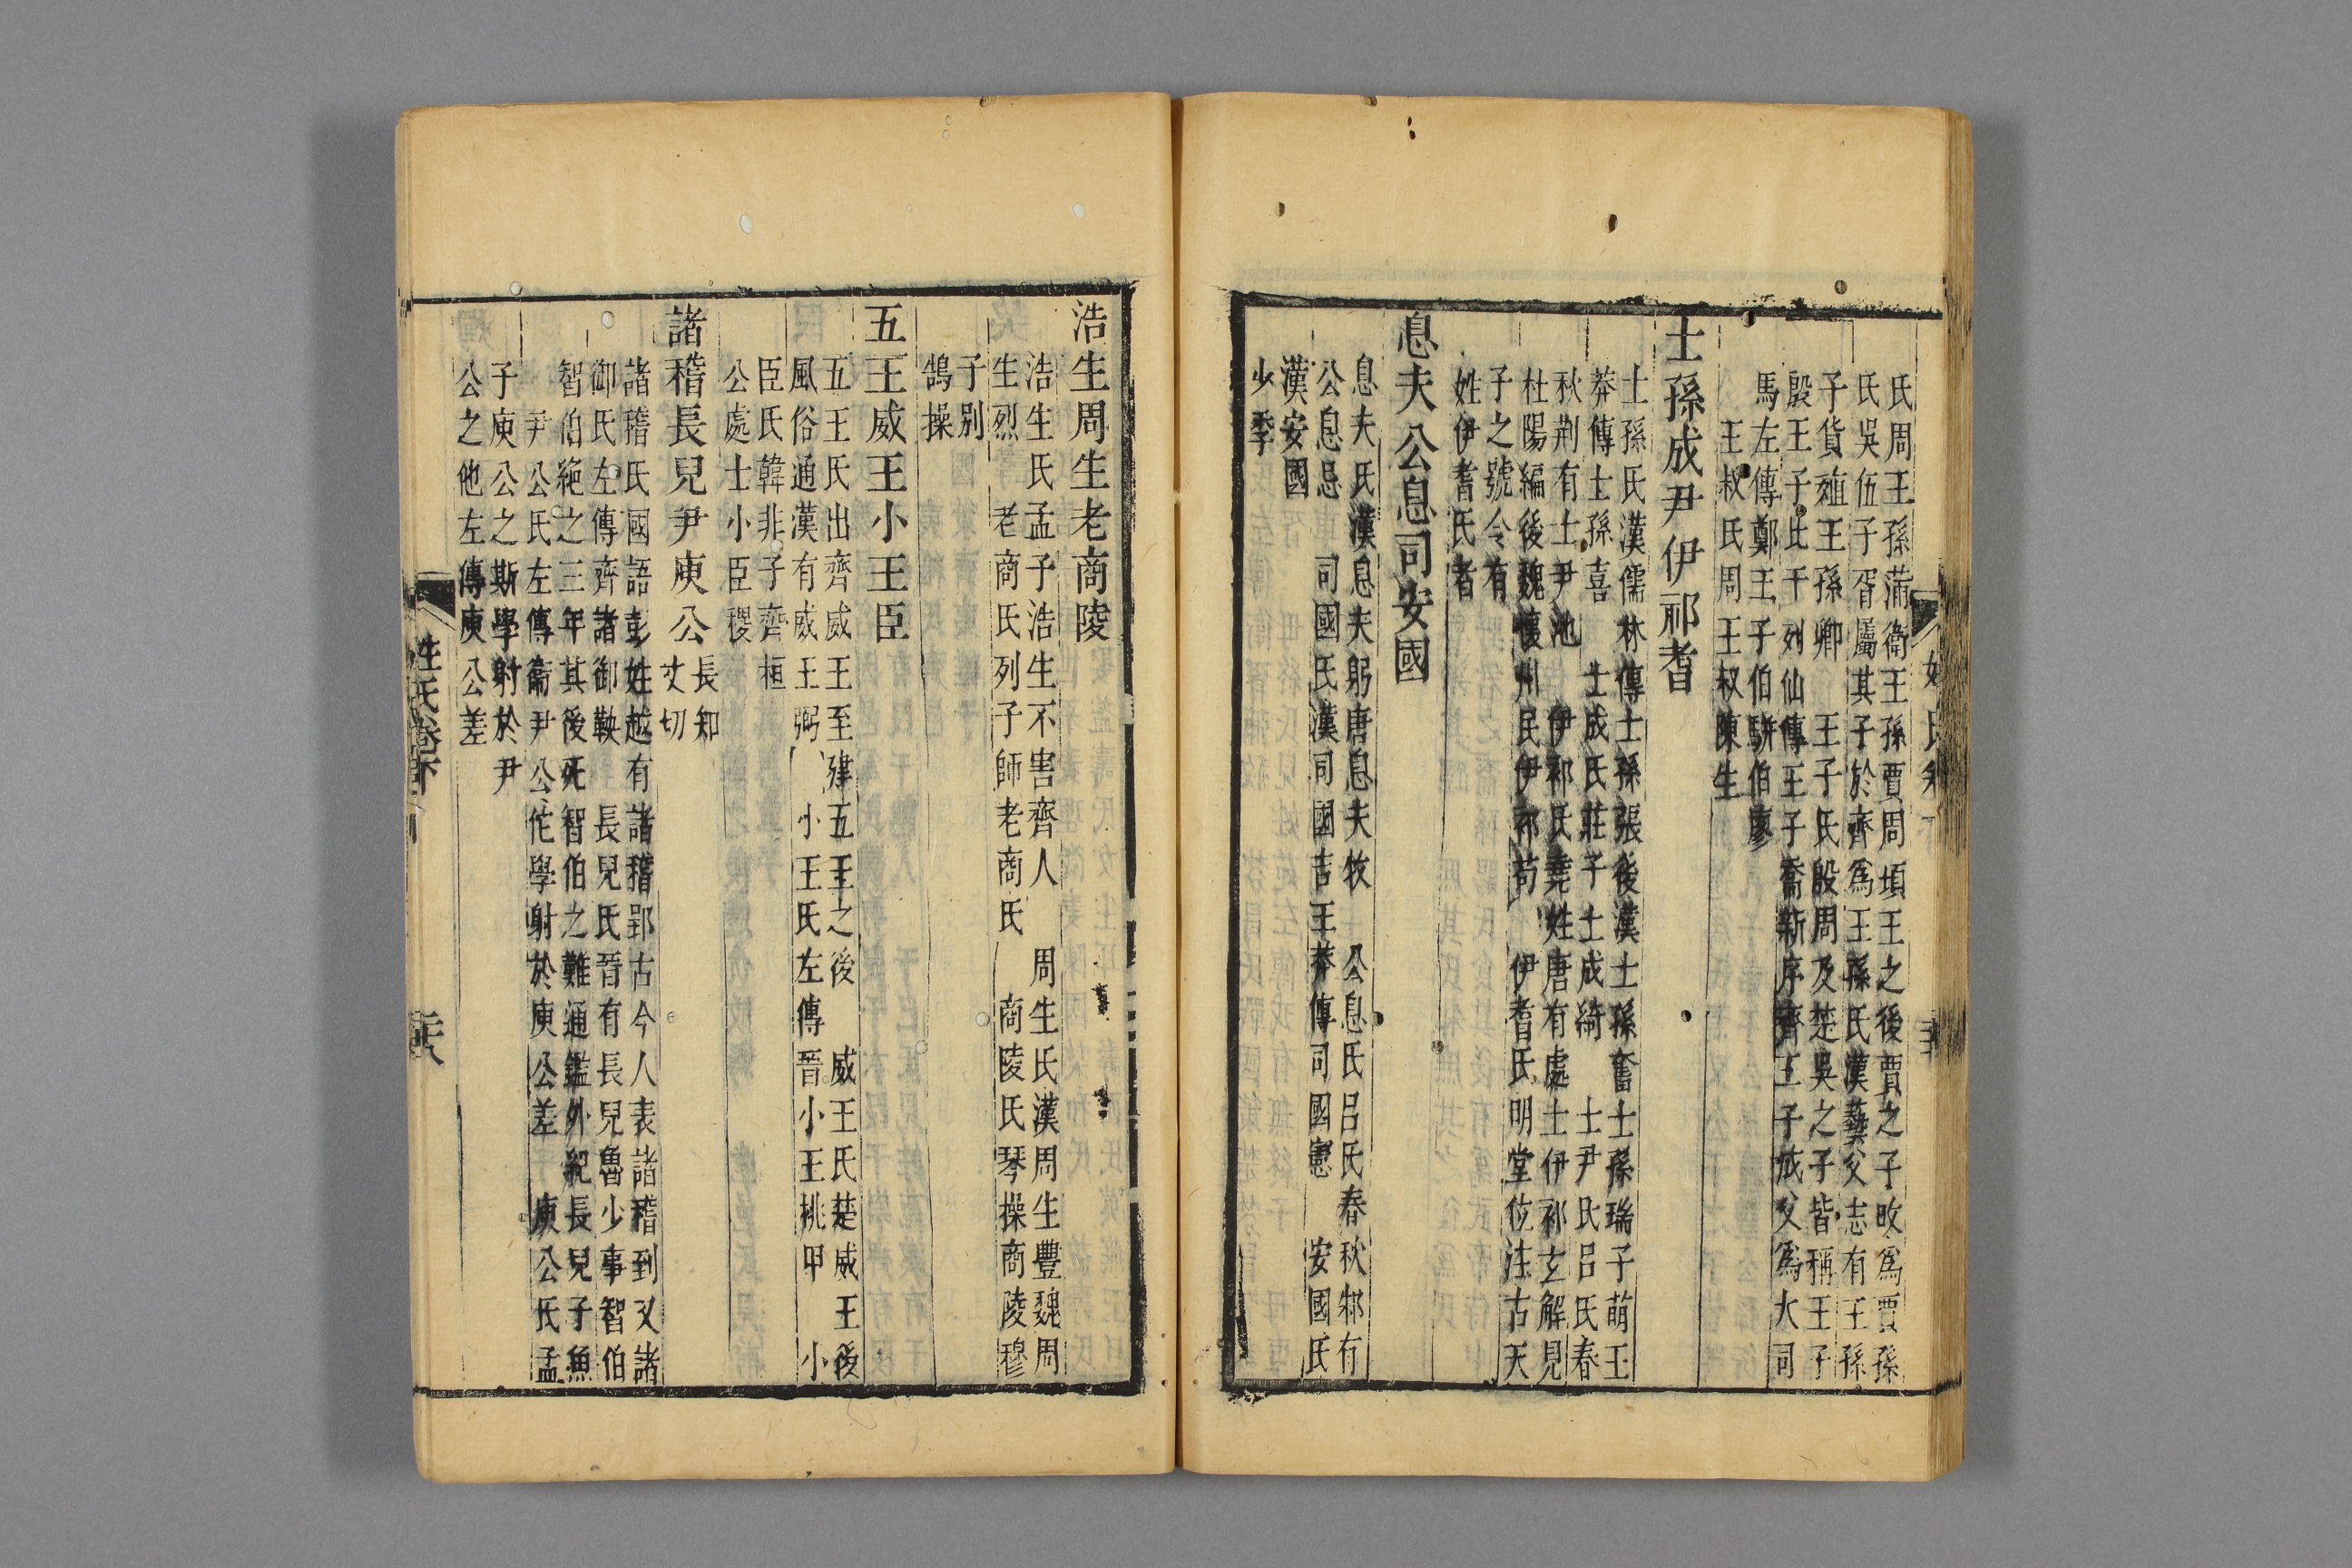 氏周王孫蒲衛王孫賈周頃王之後賈之子㫘為賈孫
氏吳伍子胥屬其子於齊爲王孫氏漢藝文志有王孫
子貨殖王孫卿 王子氏殷周及楚吳之子皆稱王子
殷王子比干列仙傳王子喬新序齊王子成父爲大司
馬左傳鄭王子伯駢伯廖
王叔氏周王叔陳生
士孫成尹伊祁耆
士孫氏漢儒林傳士孫張後漢士孫奮士孫瑞子萌王
莽傳士孫喜 士成氏莊子士成綺 士尹氏呂氏春
秋荆有士尹池 伊祁氏堯姓唐有處士伊祁玄解見
杜陽編後魏懷州民伊祁苟 伊耆氏明堂位注古天
子之號令有
姓伊耆氏者
息夫公息司安國
息夫氏漢息夫躬唐息夫牧 公息氏呂氏春秋邾有
公息忌 司國氏漢司國吉王莽傳司國憲 安國氏
漢安國
少季
浩生周生老商陵
浩生氏孟子浩生不害齊人 周生氏漢周生豐魏周
生烈 老商氏列子師老商氏 商陵氏琴操商陵穆
子別
鵠操
五王威王小王臣
五王氏出齊威王王至建五王之後 威王氏楚威王後
風俗通漢有威王弼 小王氏左傳晉小王桃甲 小
臣氏韓非子齊桓
公處士小臣稷
諸稽長兒尹庾公 長知丈切
諸稽氏國語彭姓越有諸稽郢古今人表諸稽到又諸
御氏左傳齊諸御鞅 長兒氏晉有長兒魯少事智伯
智伯絶之三年其後死智伯之難通鑑外紀長兒子魚
尹公氏左傳衞尹公佗學射於庾公差 庾公氏孟
子庾公之斯學射於尹
公之他左傳庾公差
姓氏卷下